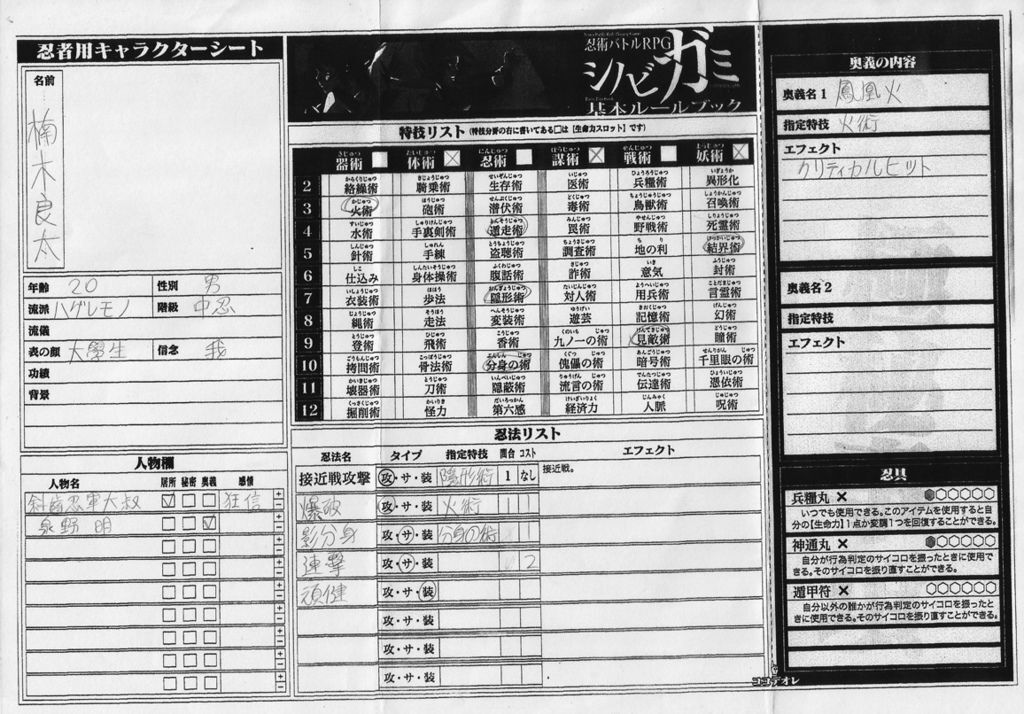 忍者用キャラクターシート
名前
楠木良太
年齢 20 性別 男
流派 ハグレモノ 階級 中忍
流儀
表の顔 大學生 信念 我
功績
背景
人物欄
人物名 居所 秘密 奥義 感情
斜歯忍軍大叔 狂信
泉野 明
忍術バトルRPG
シノビガミ
基本ルールブック
特技リスト (特技分野の右に書いてある□は【生命力スロット】です)
器術 体術 忍術 謀術 戦術 妖術
2 絡繰術 騎乗術 生存術 医術 兵糧術 異形化
3 火術 砲術 潜伏術 毒術 鳥獣術 召喚術
4 水術 手裏剣術 遁走術 罠術 野戦術 死霊術
5 針術 手練 盗聴術 調査術 地の利 結界術
6 仕込み 身体操術 腹話術 詐術 意気 封術
7 衣装術 歩法 隠形術 対人術 用兵術 言霊術
8 縄術 走法 変装術 遊芸 記憶術 幻術
9 登術 飛術 香術 九ノ一の術 見敵術 瞳術
10 拷問術 骨法術 分身の術 傀儡の術 暗号術 千里眼の術
11 壊器術 刀術 隠蔽術 流言の術 伝達術 憑依術
12 掘削術 怪力 第六感 経済力 人脈 呪術
忍法リスト
忍法名 タイプ 指定特技 間合 コスト エフェクト
接近戦攻撃 攻・サ・装 隠形術 1 なし 接近戦。
爆破 攻・サ・装 火術 1 1
影分身 攻・サ・装 分身の術 1
連撃 攻・サ・装 2
頑健 攻・サ・装
攻・サ・装
攻・サ・装
攻・サ・装
奥義の内容
奥義名1 鳳凰火
指定特技 火術
エフェクト
クリティカルヒット
奥義名2
指定特技
エフェクト
忍具
兵糧丸 ×
いつでも使用できる。このアイテムを使用すると自
分の【生命力】1点か変調1つを回復することができる。
神通丸 ×
自分が行為判定のサイコロを振ったときに使用で
きる。そのサイコロを振り直すことができる。
遁甲符 ×
自分以外の誰かが行為判定のサイコロを振ったと
きに使用できる。そのサイコロを振り直すことができる。
ココデオレ